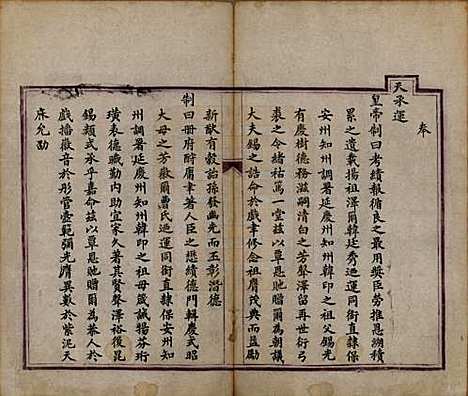 奉
天承運
皇帝制曰考績報循良之最用奬臣勞推恩溯積
累之遺載揚祖澤爾韓廷秀迺運同銜直隸保
安州知州調署延慶州知州韓印之祖父錫光
有慶樹德務滋嗣清白之芳聲澤留再世衍弓
裘之令緒祜篤一堂兹以覃恩貤贈爾為朝議
大夫錫之誥命於戲聿修念祖膺茂典而益勵
新猷有穀詒孫發幽光而丕彰潛德
制曰冊府酧庸聿著人臣之懋績德門輯慶式昭
大母之芳徽爾曹氏迺運同銜直隸保安州知
州調署延慶州知州韓印之祖母箴誡揚芬珩
璜表德職勤内助宜家久著其賢聲澤裕後昆
錫類式承乎嘉命兹以覃恩貤贈爾為恭人於
戲播徽音於彤管壼範彌光膺異數於紫泥天
庥允劭